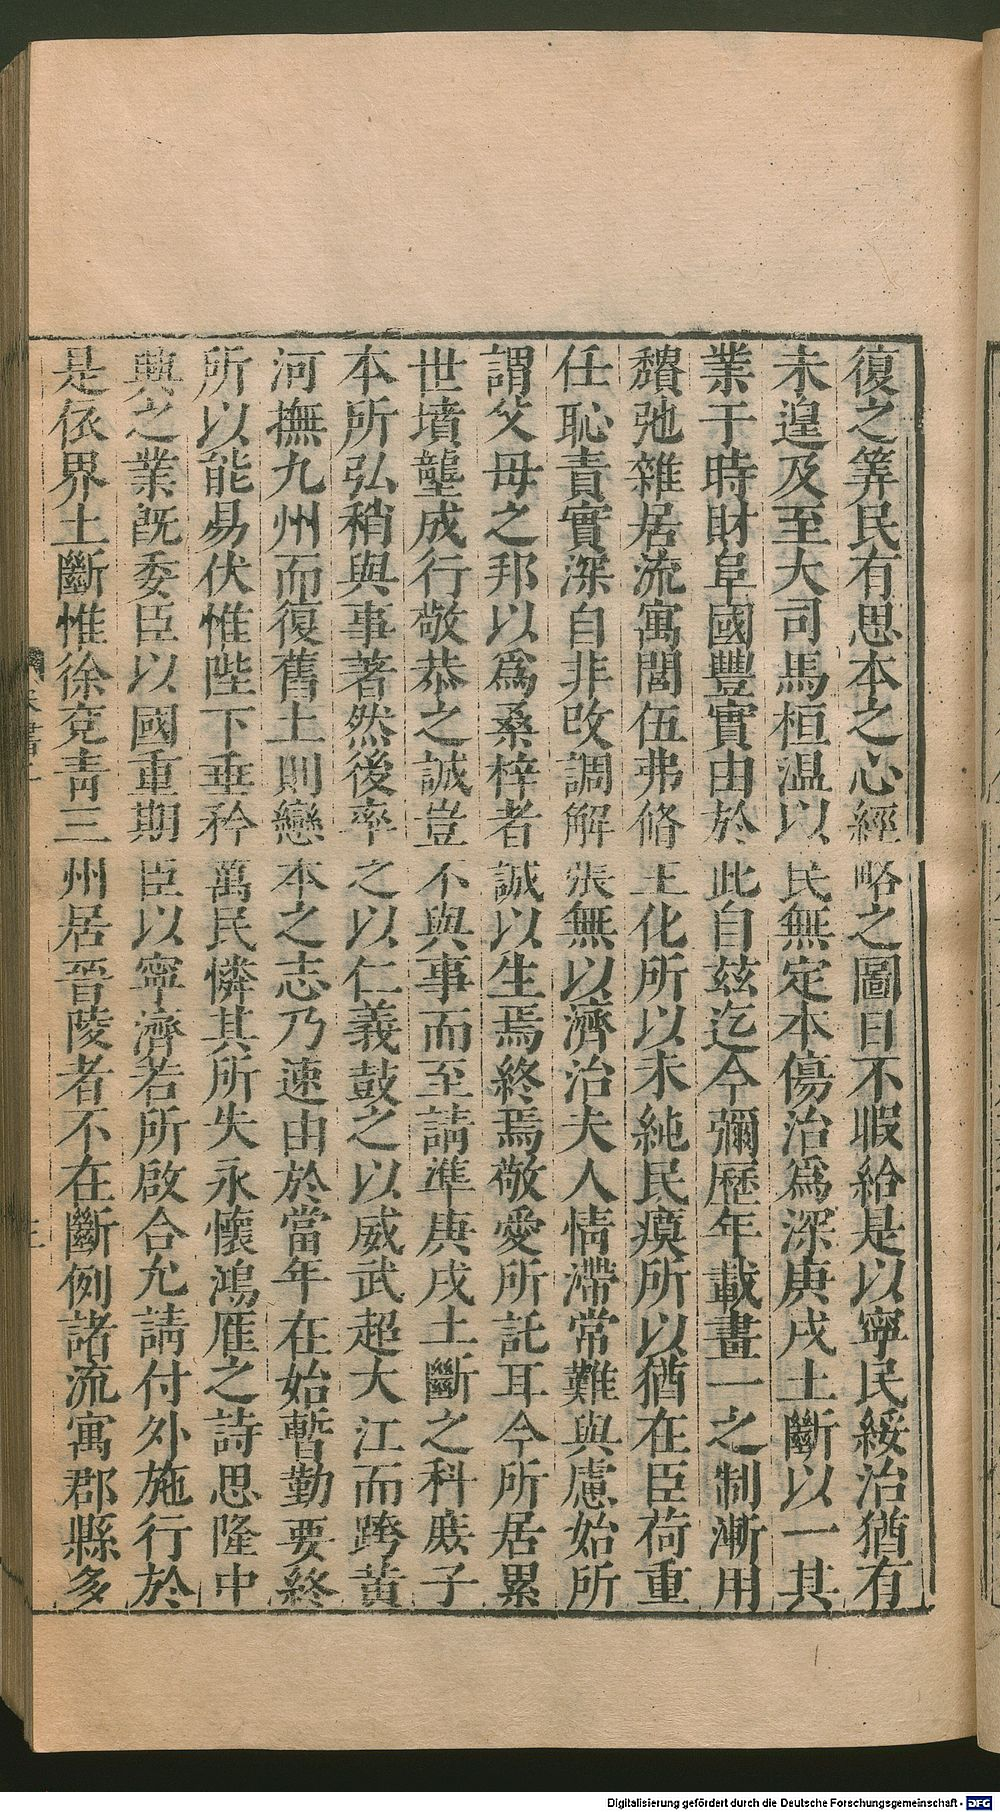 復之筭民有思本之心經略之圖日不暇給是以寧民綏治猶有
未遑及至大司馬桓温以民無定本傷治爲深庚戌土斷以一其
業于時財阜國豐實由於此自兹迄今彌歷年載畫一之制漸用
穨弛雜居流寓閭伍弗脩王化所以未純民瘼所以猶在臣荷重
任恥責實深自非改調解張無以濟治夫人情滯常難與慮始所
謂父母之邦以爲桑梓者誠以生焉終焉敬愛所託耳今所居累
世墳壟成行敬恭之誠豈不與事而至請準庚戌土斷之科庶子
本所弘稍與事著然後率之以仁義鼓之以威武超大江而跨黄
河撫九州而復舊土則戀本之志乃速由於當年在始暫勤要終
所以能易伏惟陛下垂矜萬民憐其所失永懷鴻雁之詩思隆中
興之業既委臣以國重期臣以寧濟若所啟合允請付外施行於
是依界土斷惟徐兗青三州居晉陵者不在斷例諸流寓郡縣多
Digitalisierung gefördert durch die Deutsche Forschungsgemeinschaft - DFG